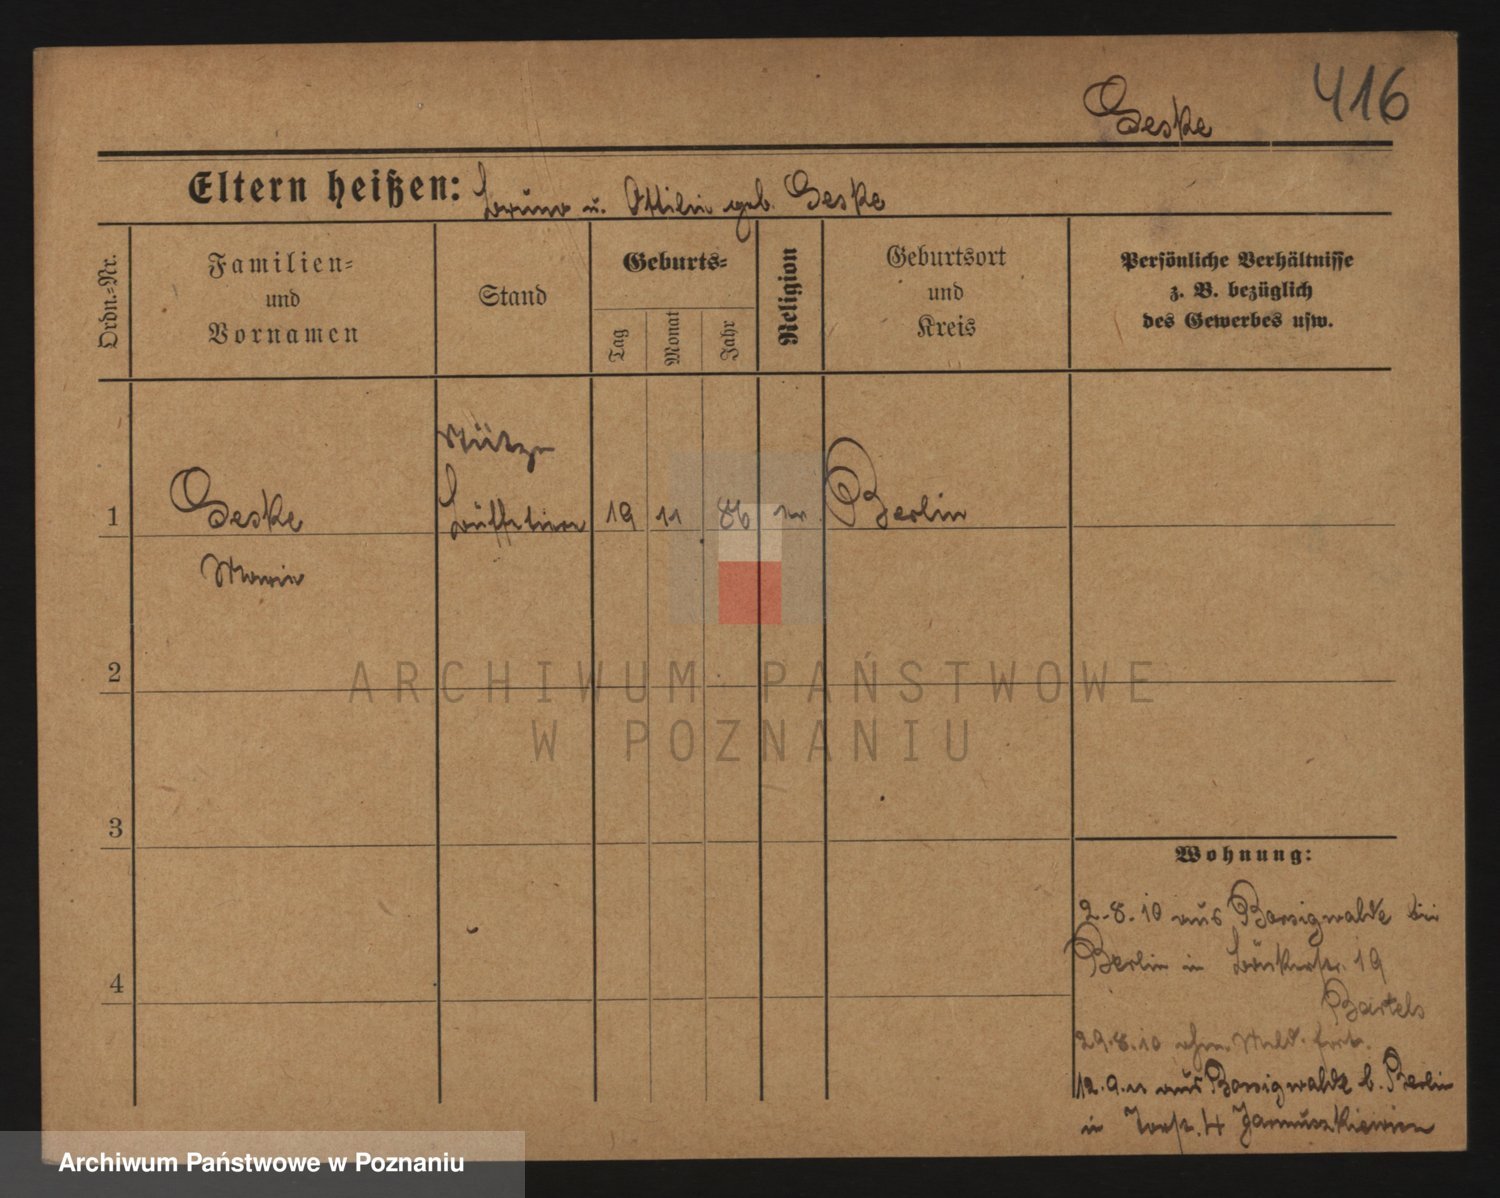 416
Geske
Eltern heißen: Bruno u. Ottilie geb. Geske
Ordn.-Nr.
Familien-
und
Vornamen
Stand
Geburts-
Tag
Monat
Jahr
Religion
Geburtsort
und
Kreis
Persönliche Verhältnisse
z. B. bezüglich
des Gewerbes usw.
Stütze
1 Geske Büffetiere 19 11 86 Berlin
Marie
2
3
4
Wohnung:
2.8.10 aus Borsigwalde bei
Berlin in Bäckerstr. 19
Bartels
29.8.10 ohne Meld. fort.
12.9.11 aus Borsigwalde b. Berlin
in 4
ARCHIWUM PAŃSTWOWE
W POZNANIU
Archiwum Państwowe w Poznaniu